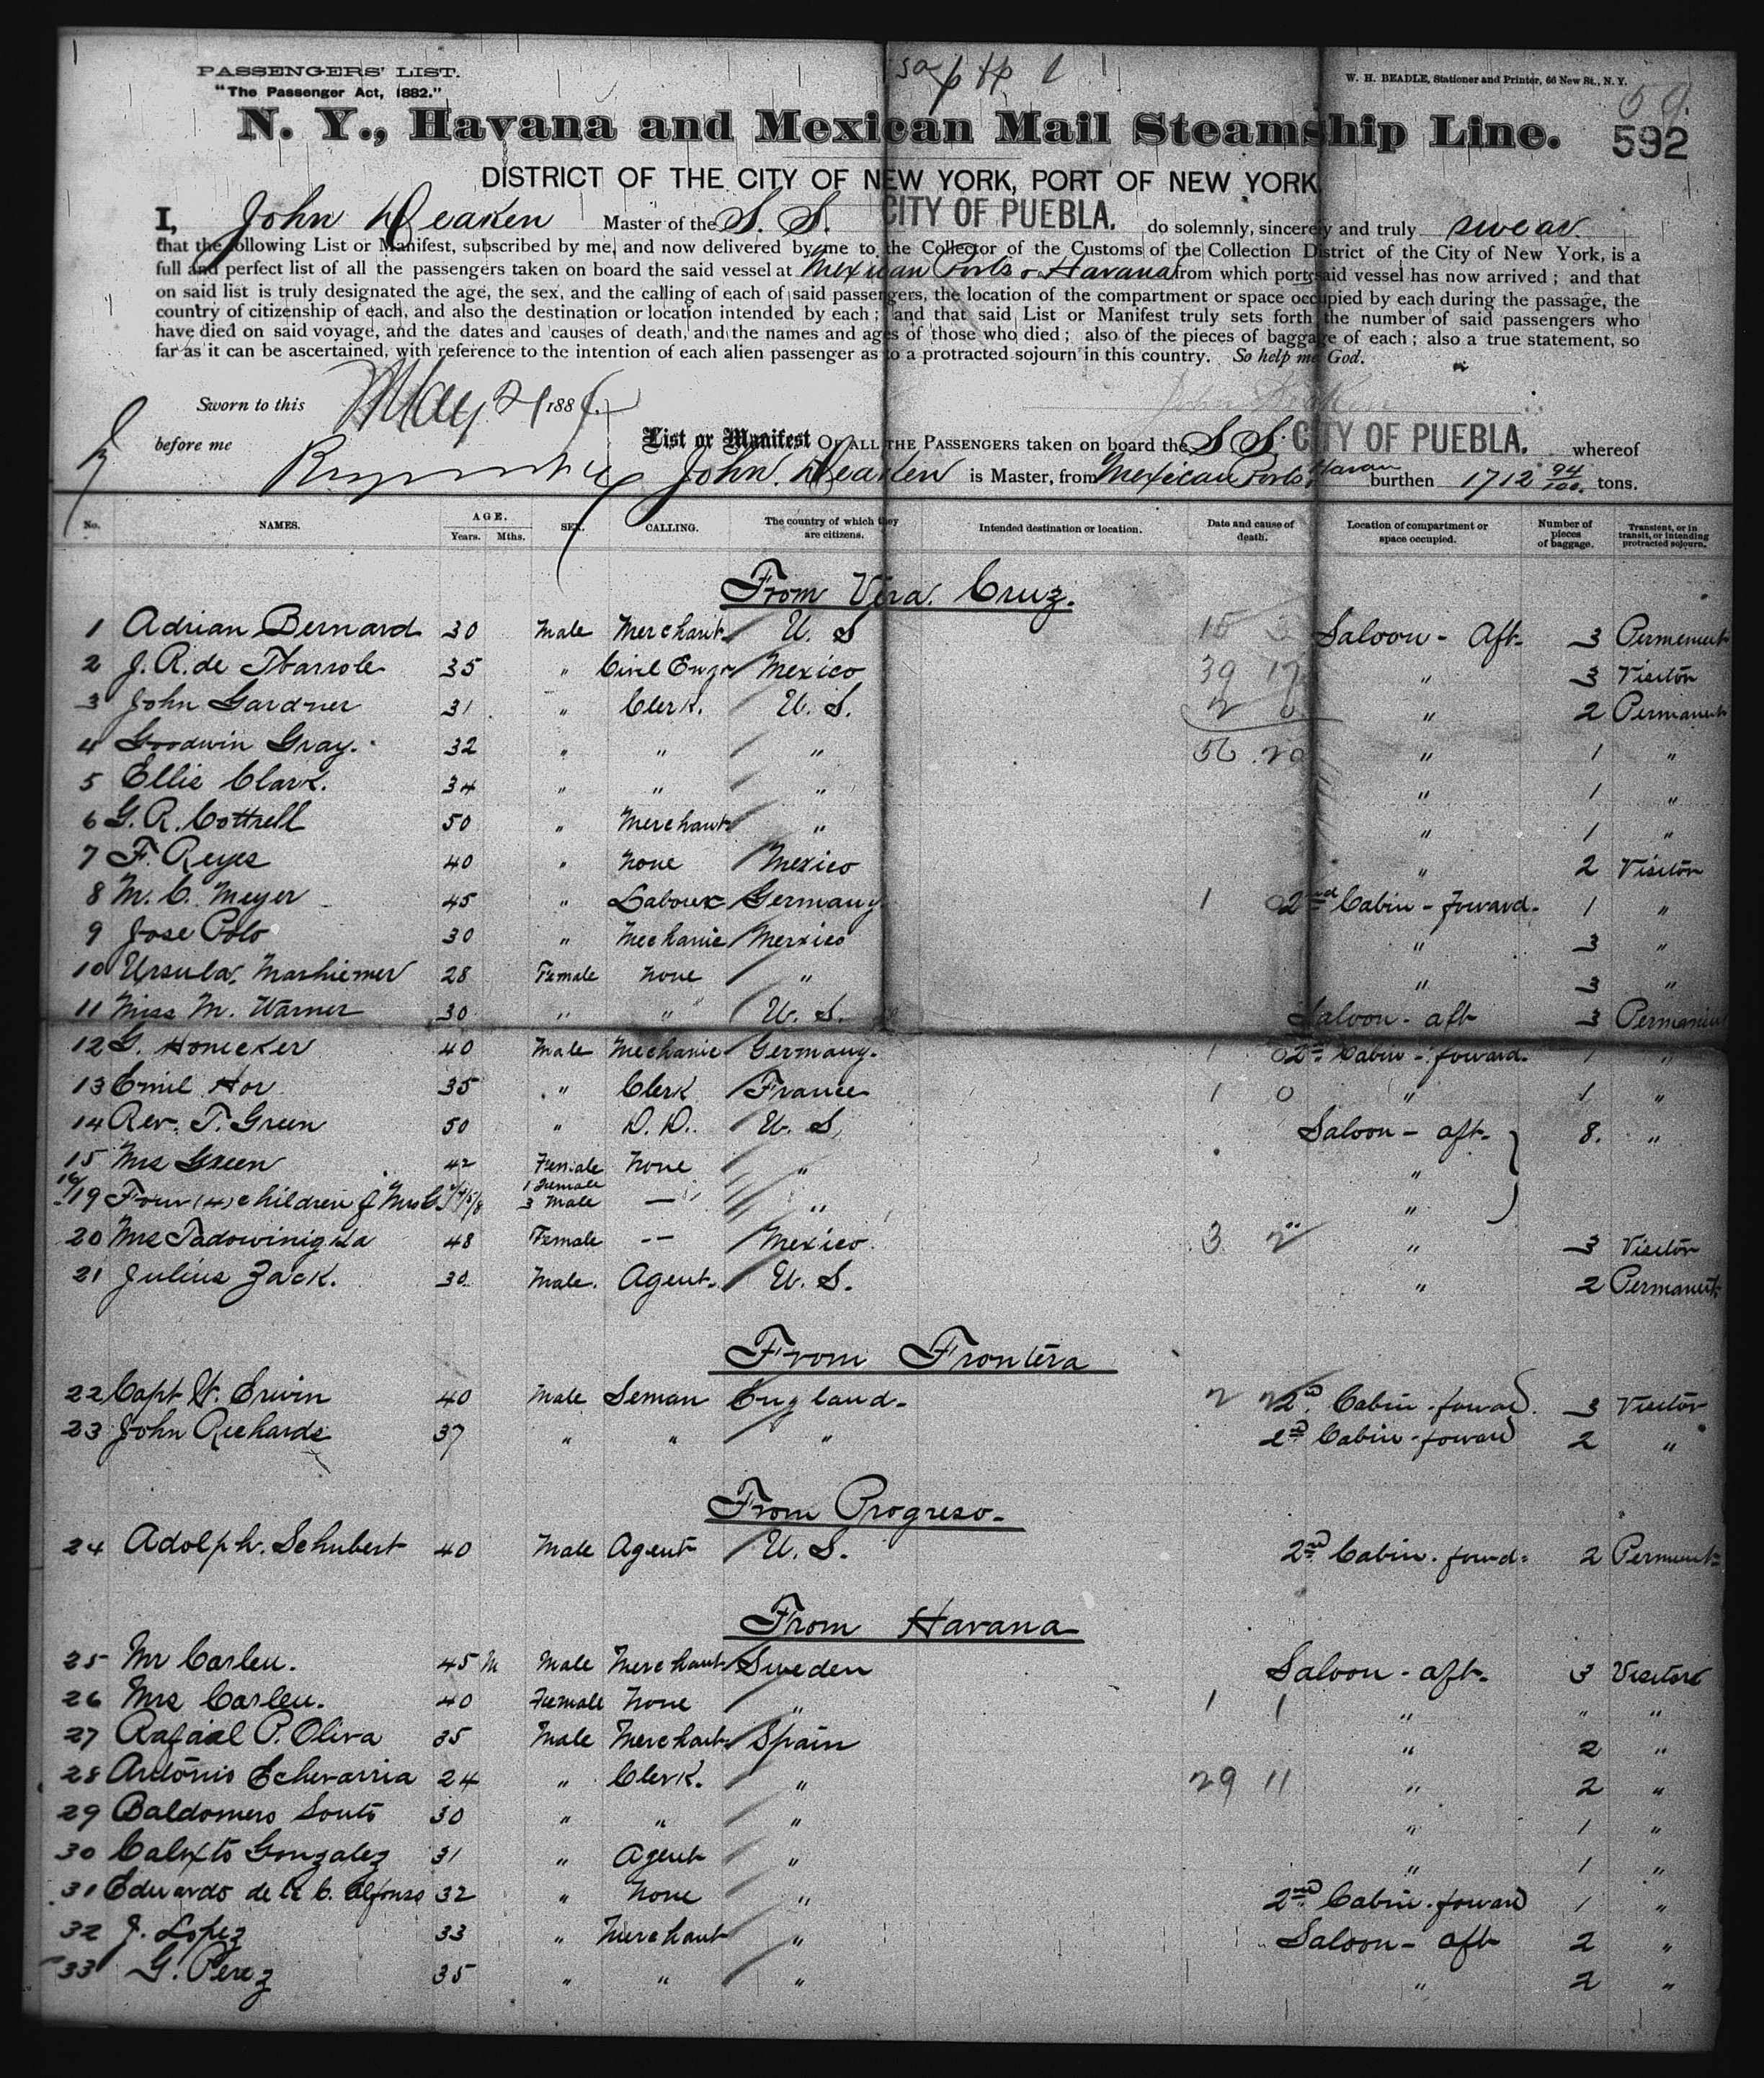 PASSENGERS' LIST.
"The Passenger Act, 1882."
W. H. BEADLE, Stationer and Printer, 66 New St., N. Y.
N. Y., Havana and Mexican Mail Steamship Line.
592
DISTRICT OF THE CITY OF NEW YORK, PORT OF NEW YORK
I, John Deaken Master of the S. S. CITY OF PUEBLA. do solemnly, sincerely and truly swear
that the following List or Manifest, subscribed by me, and now delivered by me to the Collector of the Customs of the Collection District of the City of New York, is a
full and perfect list of all the passengers taken on board the said vessel at Mexican Ports & Havana from which port said vessel has now arrived; and that
on said list is truly designated the age, the sex, and the calling of each of said passengers, the location of the compartment or space occupied by each during the passage, the
country of citizenship of each, and also the destination or location intended by each; and that said List or Manifest truly sets forth the number of said passengers who
have died on said voyage, and the dates and causes of death, and the names and ages of those who died; also of the pieces of baggage of each; also a true statement, so
far as it can be ascertained, with reference to the intention of each alien passenger as to a protracted sojourn in this country. So help me God.
John Deaken
Sworn to this May 21 188
before me
List or Manifest OF ALL THE PASSENGERS taken on board the S S. CITY OF PUEBLA. whereof
John Deaken is Master, from Mexican Ports, Havan burthen 1712 94/100 tons.
No. NAMES. AGE. Years. Mths. SEX. CALLING. The country of which they are citizens. Intended destination or location. Date and cause of death. Location of compartment or space occupied. Number of pieces of baggage. Transient, or in transit, or intending protracted sojourn.
From Vera Cruz.
1 Adrian Bernard 30 Male Merchant U. S 15 Saloon - Aft- 3 Permement
2 J. R. de Ibarrola 35 " Civil Engr Mexico 39 17 " 3 Visitor
3 John Gardner 31 " Clerk. U. S. " 2 Permanent
4 Goodwin Gray. 32 " " " 56 20 " 1 "
5 Ellis Clark. 34 " " " " 1 "
6 G. R. Cottrell 50 " Merchant " " 1 "
7 F. Reyes 40 " None Mexico " 2 Visitor
8 M. C. Meyer 45 " Labour Germany 1 0 2nd Cabin - forward. 1 "
9 Jose Polo 30 " Mechanic Mexico " 3 "
10 Ursula Marhiemer 28 Female None " " 3 "
11 Miss M. Warner 30 " " U. S. Saloon - aft 3 Permanent
12 G. Honecker 40 Male Mechanic Germany. 1 0 2nd Cabin - forward. 1 "
13 Emil Hor 35 " Clerk France 1 0 " 1 "
14 Rev. T. Green 50 " D. D. U. S. Saloon - aft. 8. "
15 Mrs Green 42 Female None " "
16/19 Four (4) children of Mrs G. 1 Female 3 Male — " "
20 Mrs Tadowinigkla 48 Female -- Mexico. 3 2 " 3 Visitor
21 Julius Zack. 30 Male. Agent. U. S. " 2 Permanent
From Frontera
22 Capt W. Erwin 40 Male Seman England. 2 2 2nd Cabin - forward. 3 Visitor
23 John Richards 37 " " " 2nd Cabin - foward 2 "
From Progreso.
24 Adolph. Schubert 40 Male Agent U. S. 2nd Cabin. forwd. 2 Perment
From Havana
25 Mr Carleu. 45 M Male Merchant Sweden Saloon - aft. 3 Visitors
26 Mrs Carleu. 40 Female None " 1 1 " " "
27 Rafaal P. Oliva 35 Male Merchant Spain " 2 "
28 Antonio Echevarria 24 " Clerk. " 29 11 " 2 "
29 Baldomero Souto 30 " " " " 1 "
30 Calixto Gonzalez 31 " Agent " " 1 "
31 Eduardo de la C. Alfonso 32 " None " 2nd Cabin. forward 1 "
32 J. Lopez 33 " Merchant " Saloon - aft 2 "
33 G. Perez 35 " " " " 2 "